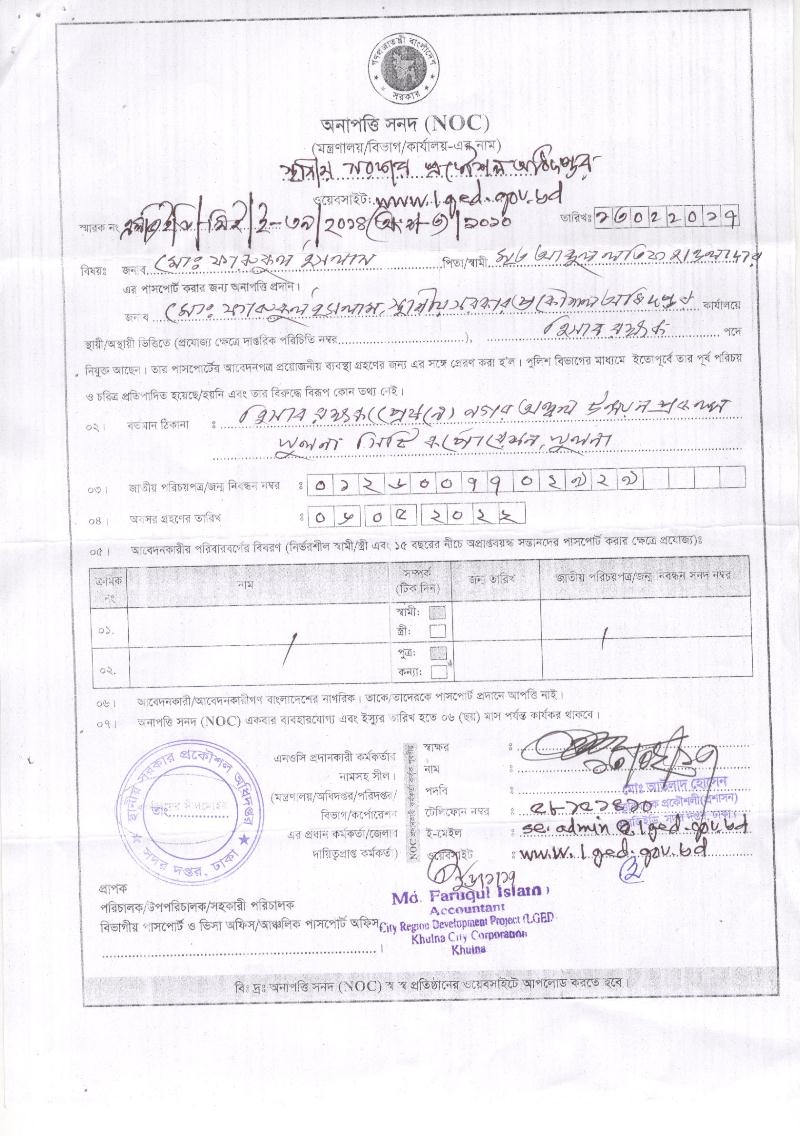 গণপ্রজাতন্ত্রী বাংলাদেশ
সরকার
অনাপত্তি সনদ (NOC)
(মন্ত্রণালয়/বিভাগ/কার্যালয়-এর নাম)
স্থানীয় সরকার প্রকৌশল অধিদপ্তর
ওয়েবসাইট: www.lged.gov.bd
স্মারক নং
তারিখঃ ২৩০২২০১৭
বিষয়ঃ জনাব মোঃ ফারুকুল ইসলাম পিতা/স্বামী মৃত আব্দুল লতিফ হাওলাদার
এর পাসপোর্ট করার জন্য অনাপত্তি প্রদান।
জনাব মোঃ ফারুকুল ইসলাম, স্থানীয় সরকার প্রকৌশল অধিদপ্তর কার্যালয়ে
স্থায়ী/অস্থায়ী ভিত্তিতে (প্রযোজ্য ক্ষেত্রে দাপ্তরিক পরিচিতি নম্বর), হিসাব রক্ষক পদে
নিযুক্ত আছেন। তার পাসপোর্টের আবেদনপত্র প্রয়োজনীয় ব্যবস্থা গ্রহণের জন্য এর সঙ্গে প্রেরণ করা হ'ল। পুলিশ বিভাগের মাধ্যমে ইতোপূর্বে তার পূর্ব পরিচয়
ও চরিত্র প্রতিপাদিত হয়েছে/হয়নি এবং তার বিরুদ্ধে বিরূপ কোন তথ্য নেই।
০২। বর্তমান ঠিকানা : হিসাব রক্ষক (প্রেষনে) নগর অঞ্চল উন্নয়ন প্রকল্প
খুলনা সিটি কর্পোরেশন, খুলনা
০৩। জাতীয় পরিচয়পত্র/জন্ম নিবন্ধন নম্বর :
০৪। অবসর গ্রহণের তারিখ :
০৫। আবেদনকারীর পরিবারবর্গের বিবরণ (নির্ভরশীল স্বামী/স্ত্রী এবং ১৫ বছরের নীচে অপ্রাপ্তবয়স্ক সন্তানদের পাসপোর্ট করার ক্ষেত্রে প্রযোজ্য)ঃ
ক্রমিক নং নাম সম্পর্ক (টিক দিন) জন্ম তারিখ জাতীয় পরিচয়পত্র/জন্ম নিবন্ধন সনদ নম্বর
০১. স্বামী:
স্ত্রী:
০২. পুত্র:
কন্যা:
০৬। আবেদনকারী/আবেদনকারীগণ বাংলাদেশের নাগরিক। তাকে/তাদেরকে পাসপোর্ট প্রদানে আপত্তি নাই।
০৭। অনাপত্তি সনদ (NOC) একবার ব্যবহারযোগ্য এবং ইস্যুর তারিখ হতে ০৬ (ছয়) মাস পর্যন্ত কার্যকর থাকবে।
স্থানীয় সরকার প্রকৌশল অধিদপ্তর
সদর দপ্তর, ঢাকা
এনওসি প্রদানকারী কর্মকর্তার
নামসহ সীল।
(মন্ত্রণালয়/অধিদপ্তর/পরিদপ্তর/
বিভাগ/কর্পোরেশন
এর প্রধান কর্মকর্তা/জেলার
দায়িত্বপ্রাপ্ত কর্মকর্তা)
স্বাক্ষর :
নাম :
পদবি :
মোঃ আওলাদ হোসেন
টেলিফোন নম্বর :
ই-মেইল : se.admin@lged.gov.bd
ওয়েবসাইট : www.lged.gov.bd
প্রাপক
পরিচালক/উপপরিচালক/সহকারী পরিচালক
বিভাগীয় পাসপোর্ট ও ভিসা অফিস/আঞ্চলিক পাসপোর্ট অফিস,
Md. Faruqul Islam
Accountant
City Region Development Project (LGED)
Khulna City Corporation
Khulna
বিঃ দ্রঃ অনাপত্তি সনদ (NOC) স্ব স্ব প্রতিষ্ঠানের ওয়েবসাইটে আপলোড করতে হবে।